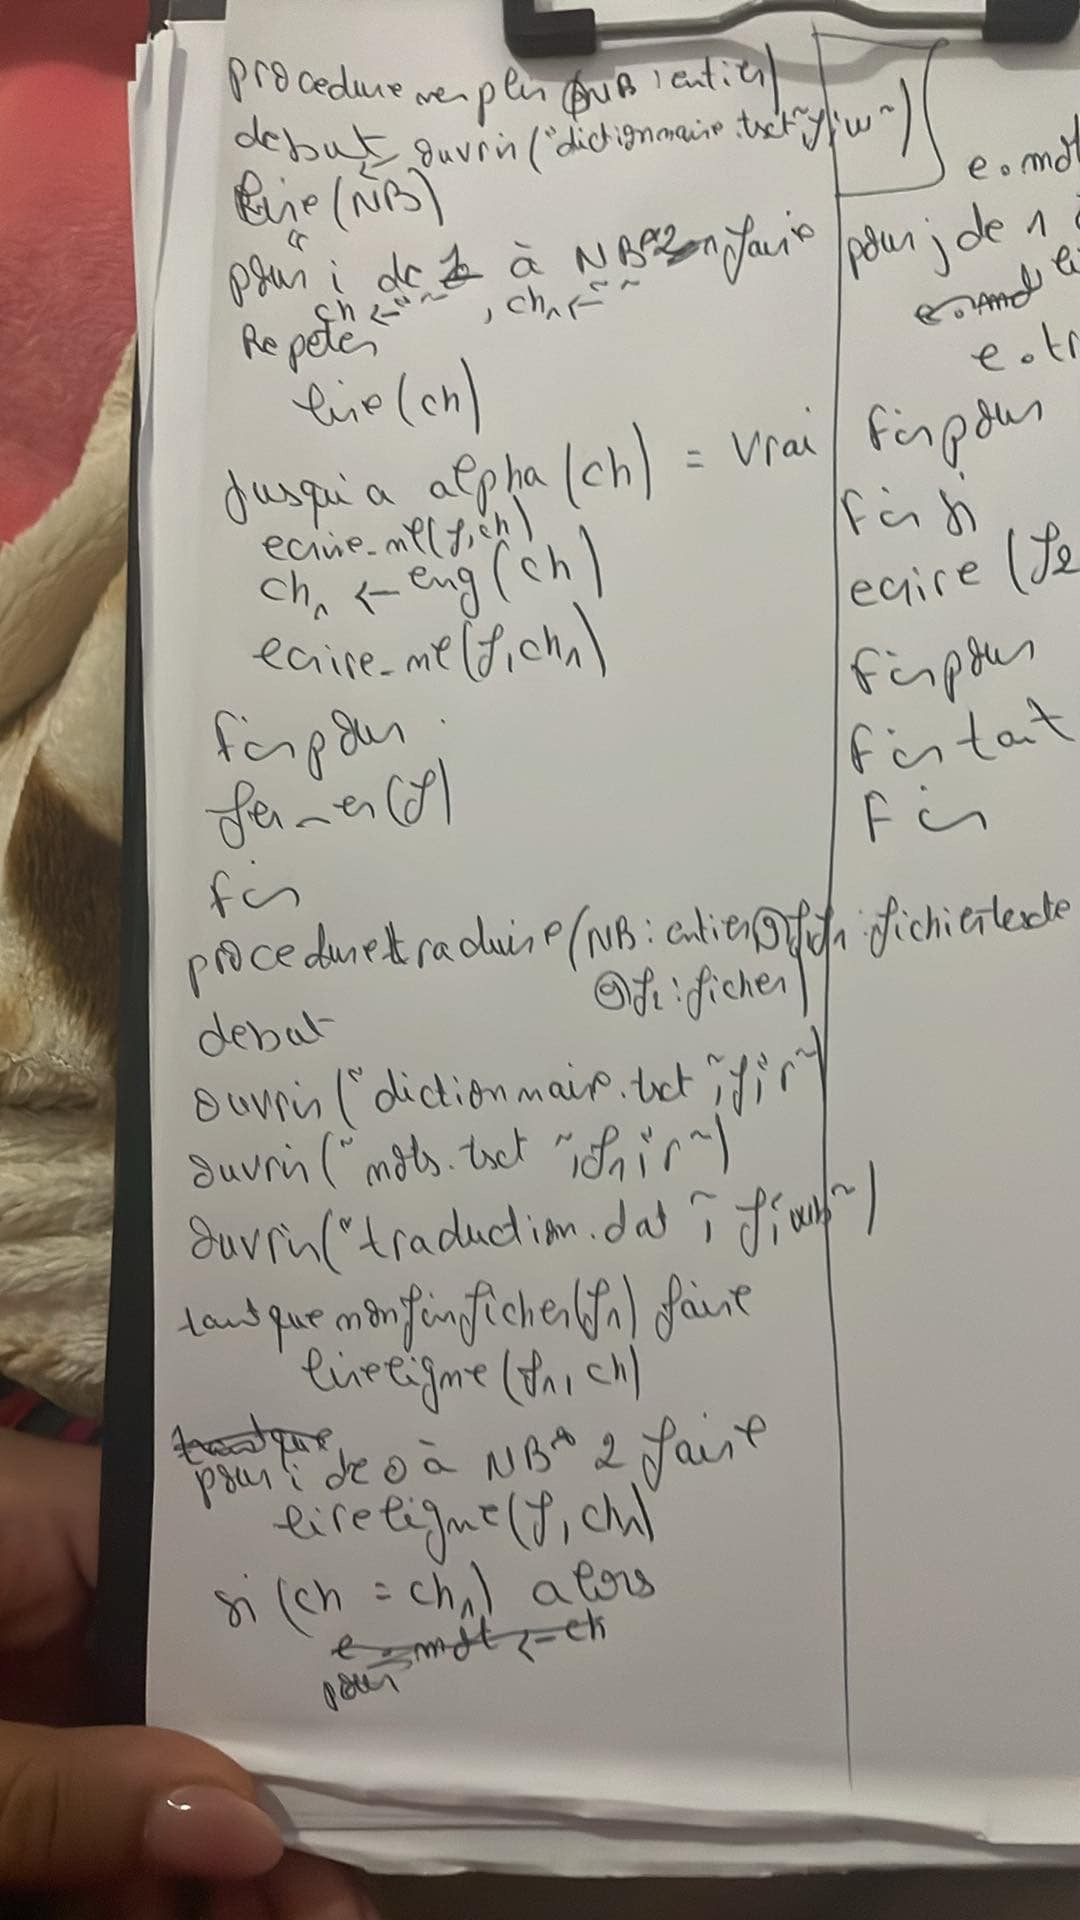 procedure remplir (@NB : entier)
debut ouvrir("dictionnaire.txt", f, "w")
lire(NB)
pour i de à NB faire
ch ← "", ch1 ← ""
Repeter
lire(ch)
jusqu'a alpha(ch) = vrai
ecrire_nl(f,ch)
ch1 ← eng(ch)
ecrire_nl(f,ch1)
finpour
fermer(f)
fin
procedure traduire(NB: entier, @f,f1 : fichier texte
@f2 : fichier)
debut
ouvrir("dictionnaire.txt", f, "r")
ouvrir("mots.txt", f1, "r")
ouvrir("traduction.dat", f, "wb")
tantque non finfichier(f1) faire
lireligne(f1, ch)
tantque
pour i de 0 à NB*2 faire
lireligne(f, ch1)
si (ch = ch1) alors
e.mot ← ch
pour
e.mot
pour j de 1
e.mot
e.tr
finpour
finsi
ecrire (f2
finpour
fintant
Fin